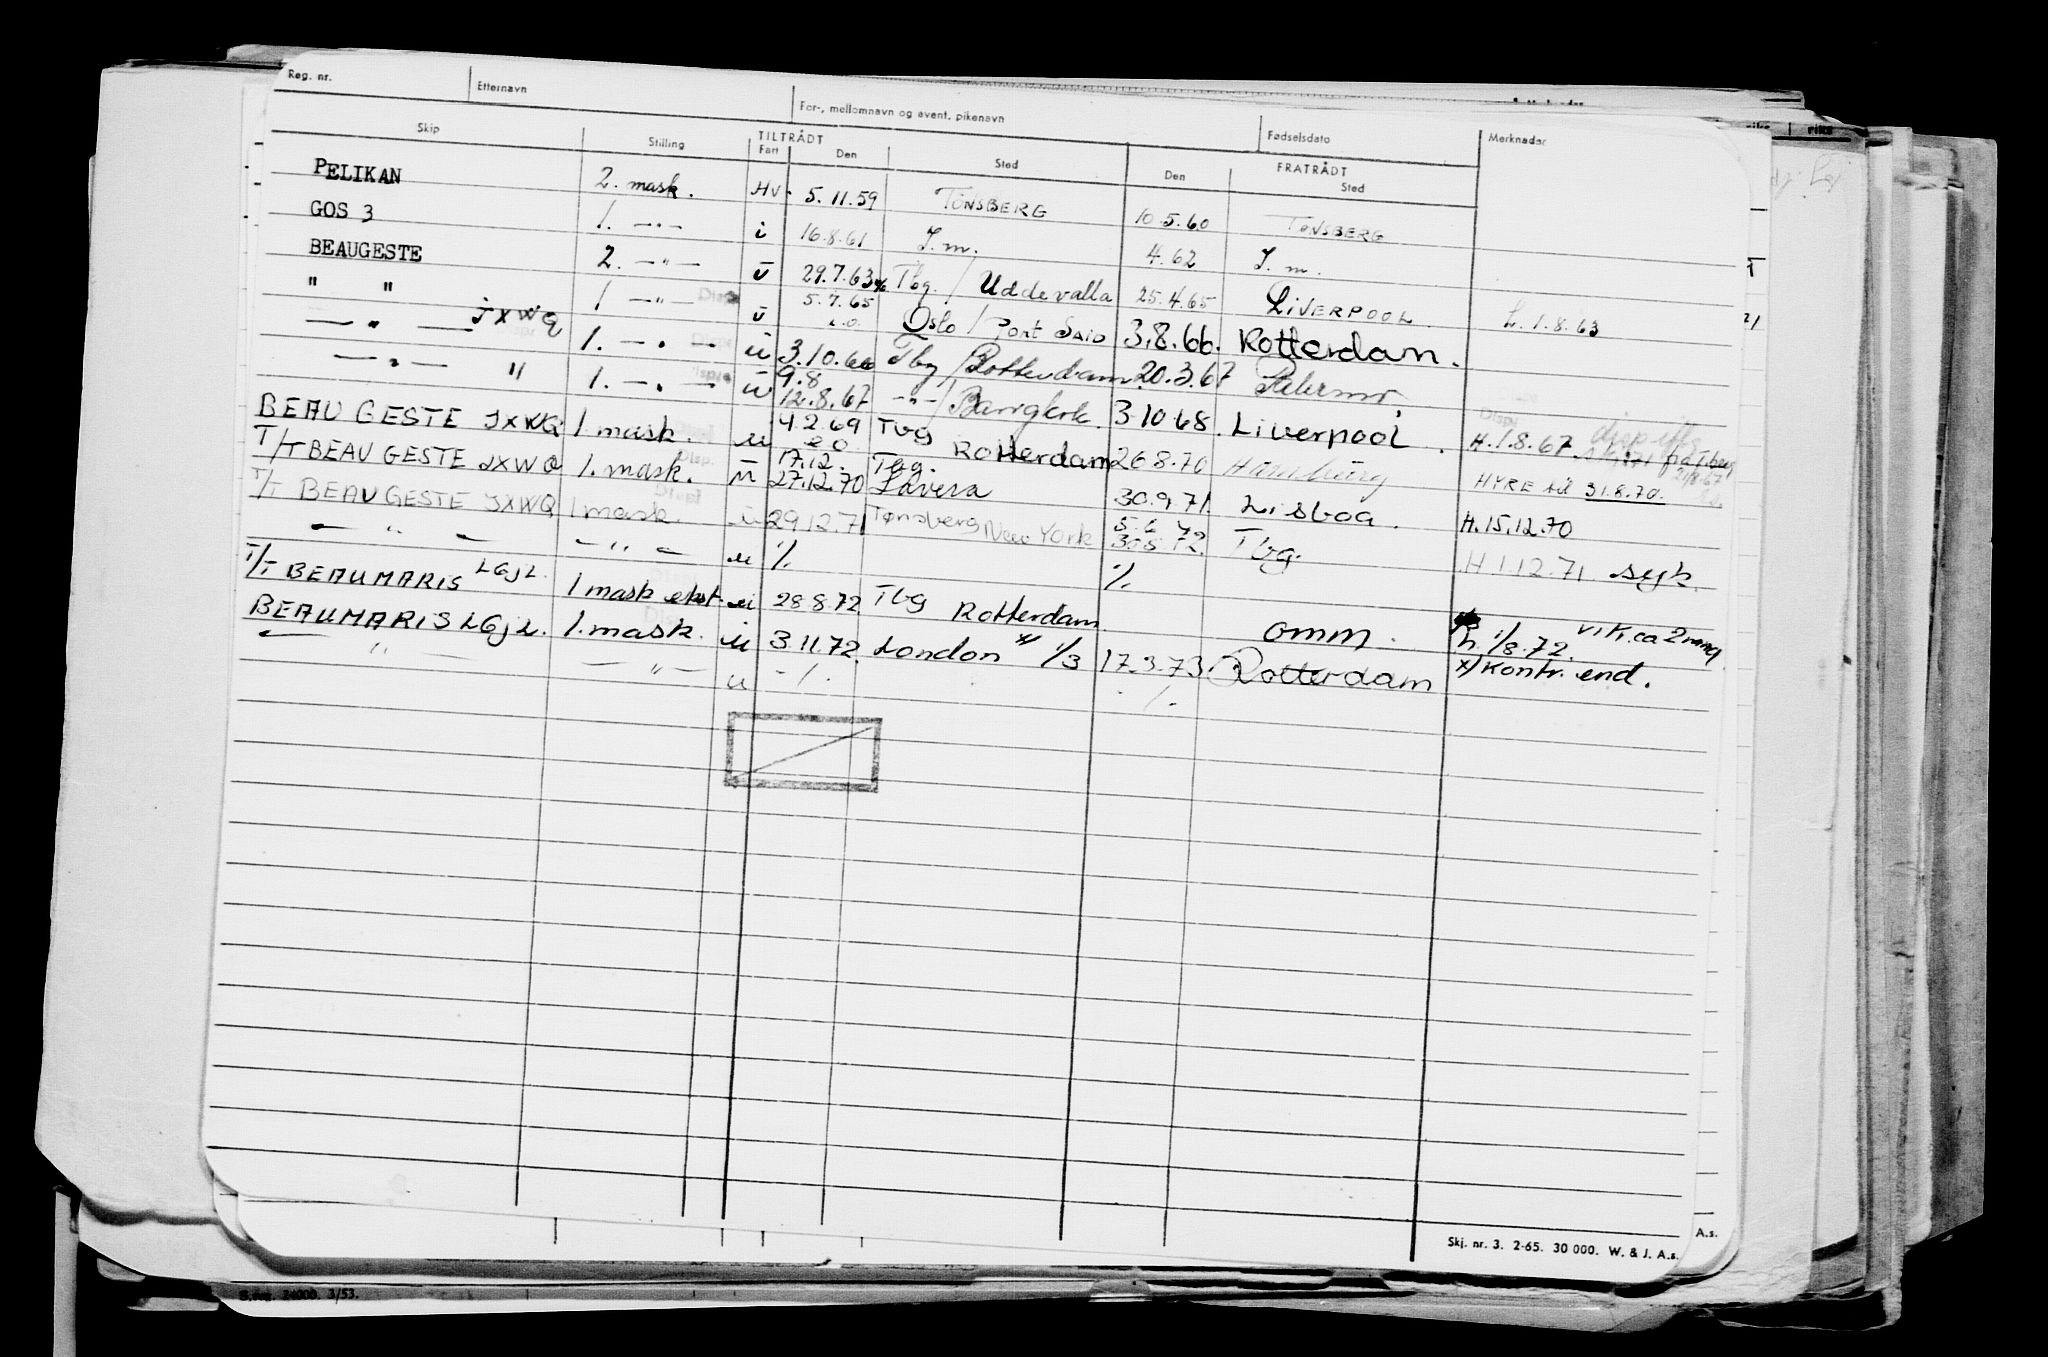 Reg. nr. Etternavn For-, mellomnavn og event. pikenavn Fødselsdato Merknader
Skip Stilling TILTRÅDT FRATRÅDT
Fart Den Sted Den Sted
PELIKAN 2. mask. HV. 5.11.59 TØNSBERG 10.5.60 TØNSBERG
GOS 3 1. —"— i 16.8.61 I.m. 4.62 I.m.
BEAUGESTE 2. —"— u 29.7.63 Tbg. / Uddevalla 25.4.65 LIVERPOOL L. 1.8.63
" " 1 —"— u 5.7.65 Oslo / Port Said 3.8.66. Rotterdam.
—"— JXWQ 1. —"— u 3.10.66 Tbg / Rotterdam 20.3.67 Palermo.
—"— " 1. —"— u 9.8 12.8.67 —"— / Bangkok 3.10.68. Liverpool. H.1.8.67. fra Tberg
BEAU GESTE JXWQ 1 mask. u 4.2.69 Tbg Rotterdam 26.8.70 Hamburg HYRE til 31.8.70.
T/T BEAU GESTE JXWQ 1. mask. u 17.12. 27.12.70 Tbg. Lavera 30.9.71. Lisboa. H.15.12.70
T/T BEAU GESTE JXWQ 1 mask. u 29.12.71 Tønsberg New York 5.6 72 30.5.72. Tbg. H 1.12.71 syk.
— " — — " — u % %
T/T BEAUMARIS LGJL. 1 mask ekst. u 28.8.72 Tbg Rotterdam omm. h. 1/8.72. vik. ca 2 mnd.
BEAUMARIS LGJL. 1. mask. u 3.11.72. London x/ 1/3 17.3.73 Rotterdam x/ Kontr. end.
— " — — " — u -/. -/.
Skj. nr. 3. 2-65. 30 000. W. & J. A.s.
A.s.
24000. 3/53.